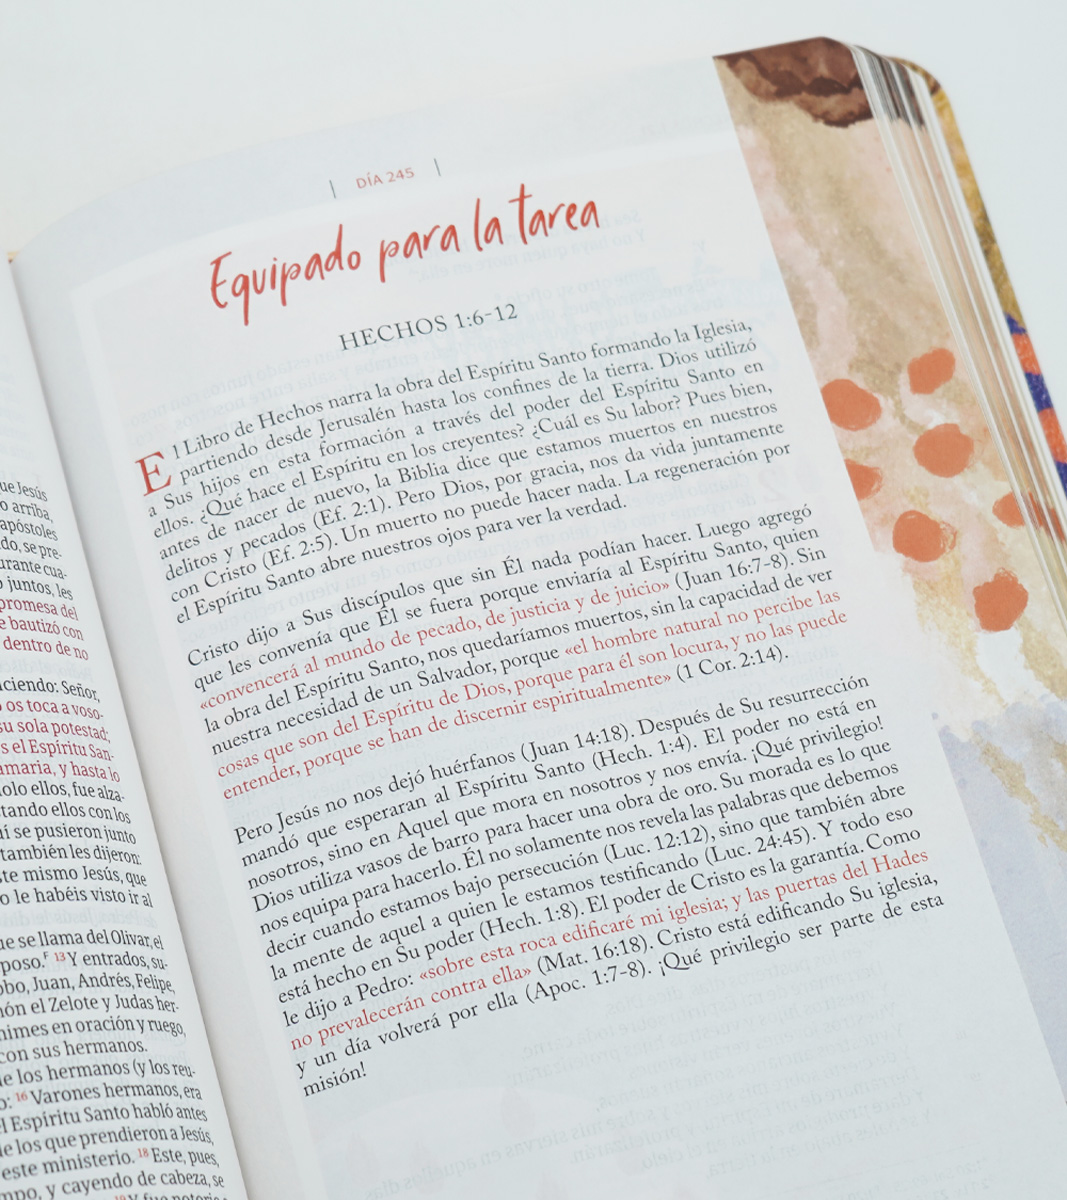 ue Jesús
o arriba,
apóstoles
do, se pre-
urante cua-
o juntos, les
promesa del
e bautizó con
dentro de no
ciendo: Señor,
os toca a voso-
su sola potestad;
s el Espíritu San-
amaria, y hasta lo
olo ellos, fue alza-
tando ellos con los
uí se pusieron junto
también les dijeron:
te mismo Jesús, que
o le habéis visto ir al
ue se llama del Olivar, el
poso. 13 Y entrados, su-
obo, Juan, Andrés, Felipe,
nón el Zelote y Judas her-
nimes en oración y ruego,
con sus hermanos.
e los hermanos (y los reu-
o: 16 Varones hermanos, era
l Espíritu Santo habló antes
e los que prendieron a Jesús,
este ministerio. 18 Este, pues,
mpo, y cayendo de cabeza, se
| DÍA 245 |
Equipado para la tarea
HECHOS 1:6-12
El Libro de Hechos narra la obra del Espíritu Santo formando la Iglesia,
partiendo desde Jerusalén hasta los confines de la tierra. Dios utilizó
a Sus hijos en esta formación a través del poder del Espíritu Santo en
ellos. ¿Qué hace el Espíritu en los creyentes? ¿Cuál es Su labor? Pues bien,
antes de nacer de nuevo, la Biblia dice que estamos muertos en nuestros
delitos y pecados (Ef. 2:1). Pero Dios, por gracia, nos da vida juntamente
con Cristo (Ef. 2:5). Un muerto no puede hacer nada. La regeneración por
el Espíritu Santo abre nuestros ojos para ver la verdad.
Cristo dijo a Sus discípulos que sin Él nada podían hacer. Luego agregó
que les convenía que Él se fuera porque enviaría al Espíritu Santo, quien
«convencerá al mundo de pecado, de justicia y de juicio» (Juan 16:7-8). Sin
la obra del Espíritu Santo, nos quedaríamos muertos, sin la capacidad de ver
nuestra necesidad de un Salvador, porque «el hombre natural no percibe las
cosas que son del Espíritu de Dios, porque para él son locura, y no las puede
entender, porque se han de discernir espiritualmente» (1 Cor. 2:14).
Pero Jesús no nos dejó huérfanos (Juan 14:18). Después de Su resurrección
mandó que esperaran al Espíritu Santo (Hech. 1:4). El poder no está en
nosotros, sino en Aquel que mora en nosotros y nos envía. ¡Qué privilegio!
Dios utiliza vasos de barro para hacer una obra de oro. Su morada es lo que
nos equipa para hacerlo. Él no solamente nos revela las palabras que debemos
decir cuando estamos bajo persecución (Luc. 12:12), sino que también abre
la mente de aquel a quien le estamos testificando (Luc. 24:45). Y todo eso
está hecho en Su poder (Hech. 1:8). El poder de Cristo es la garantía. Como
le dijo a Pedro: «sobre esta roca edificaré mi iglesia; y las puertas del Hades
no prevalecerán contra ella» (Mat. 16:18). Cristo está edificando Su iglesia,
y un día volverá por ella (Apoc. 1:7-8). ¡Qué privilegio ser parte de esta
misión!